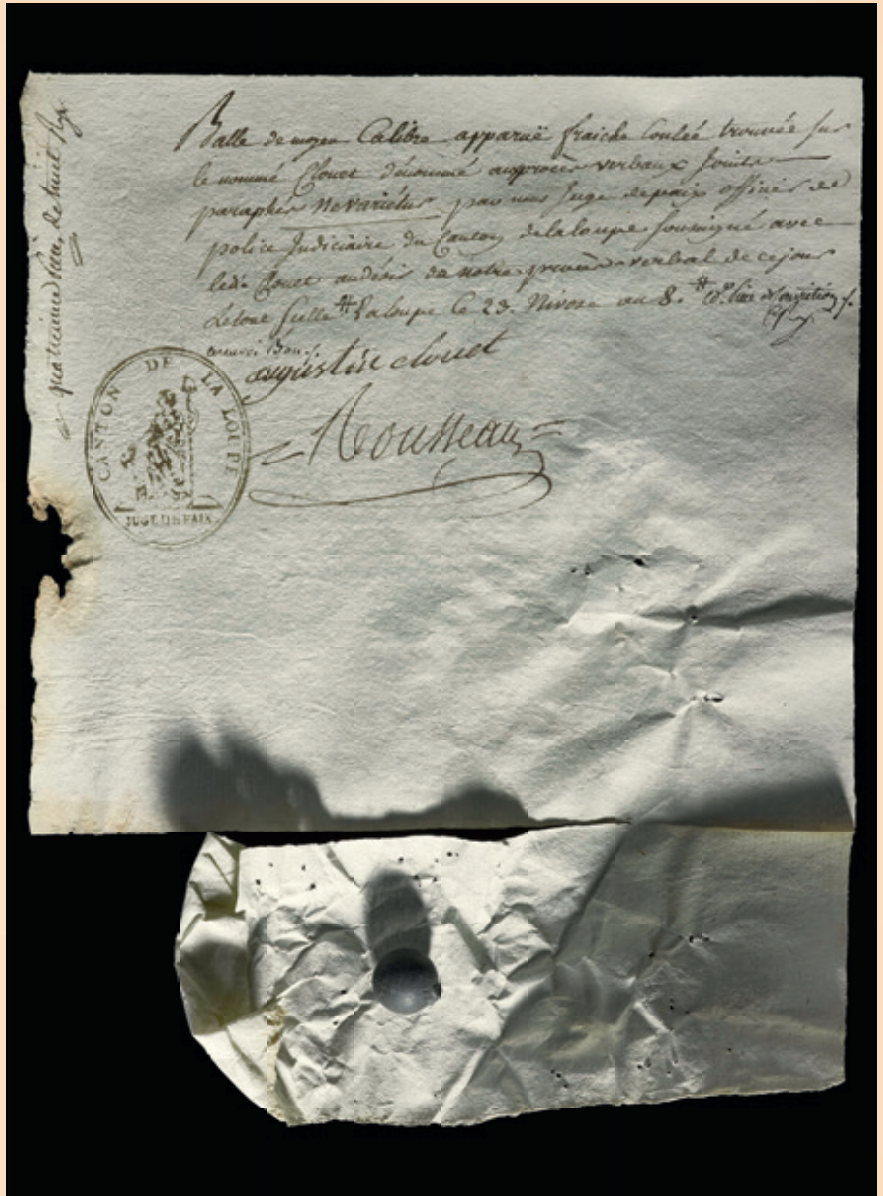 Balle de moyen Calibre apparuë fraiche Coulée trouvée sur
le nommé Clouet dénommé auxprocès verbaux Joints
paraphée Nevariétur par nous Juge depaix officier de
police Judiciaire du Canton delaloupe soussigné avec
ledt Clouet audésir de notre procès verbal de cejour
Laloupe le 23. Nivose an 8.
augustin clouet
Rousseau
CANTON DE LA LOUPE
JUGE DE PAIX